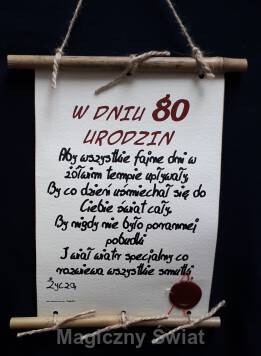 W DNIU 80
URODZIN
Aby wszystkie fajne dni w
żółwim tempie upływały,
By co dzień uśmiechał się do
Ciebie świat cały,
By nigdy nie było porannej
pobudki
I wiał wiatr specjalny co
rozwiewa wszystkie smutki
Życzą,
Magiczny Świat